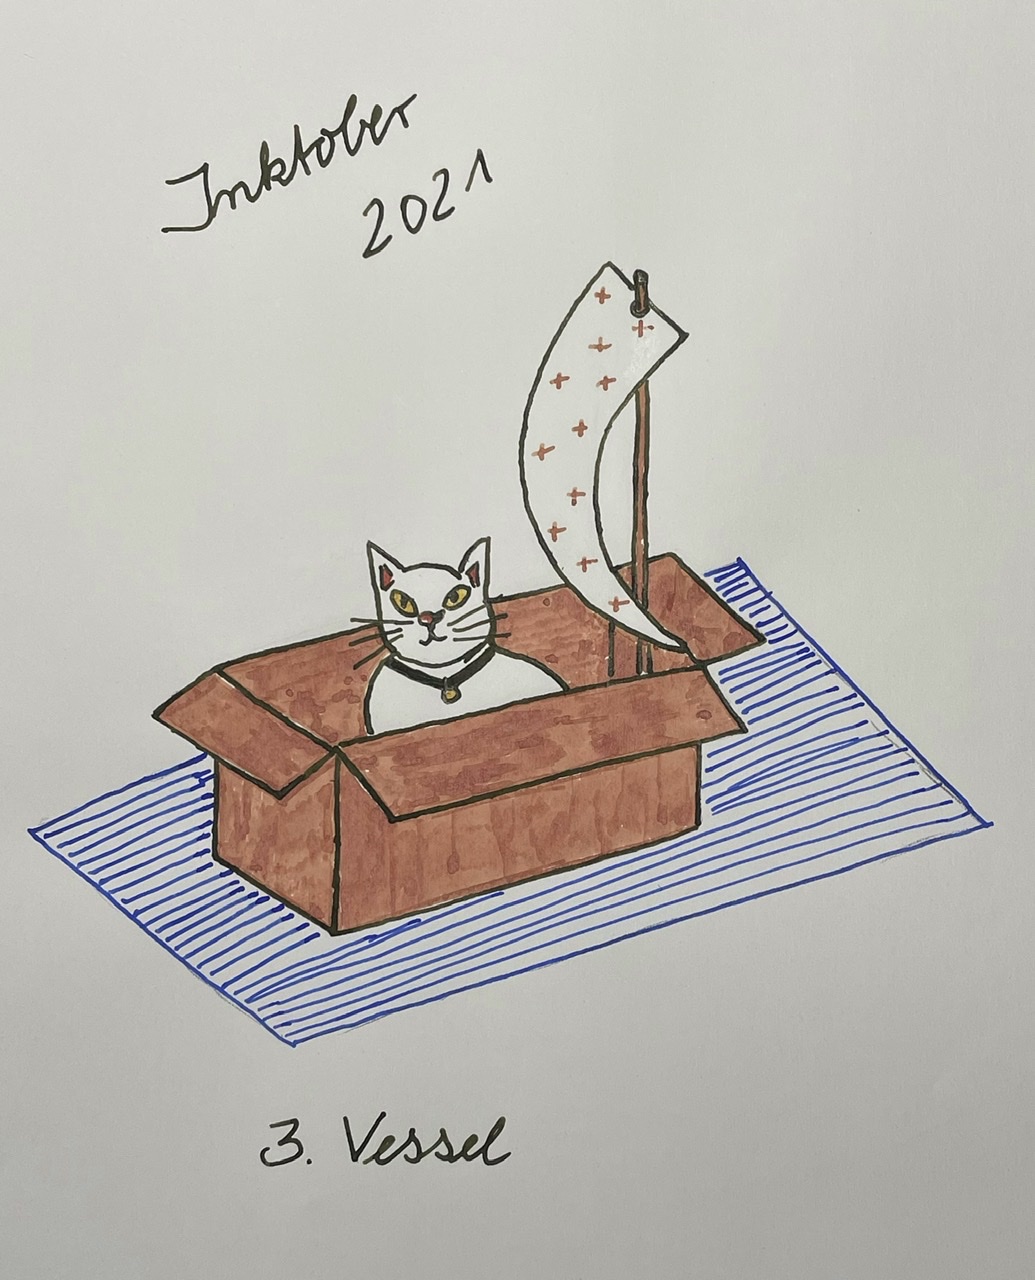 Inktober
2021
3. Vessel